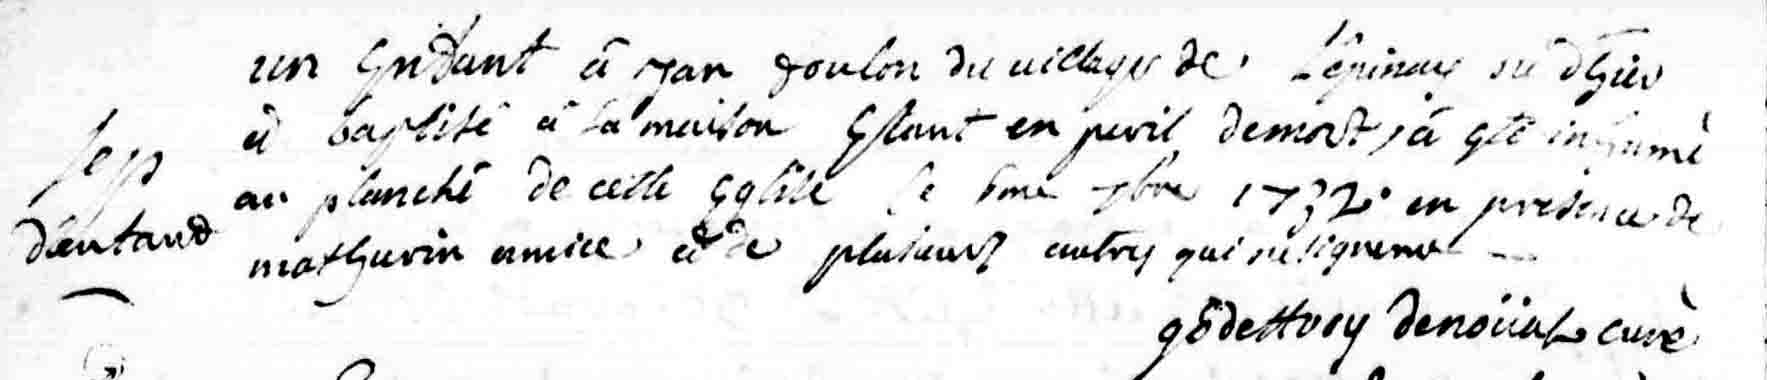 un Enfant á jan foulon du village de L'épinay né d'hier
et baptisé á la maison Estant en peril demort, á eté inhumé
au planché de cette Eglise le 7bre 1732 en presence de
mathurin et de plusieurs autres qui ne signent
Sep
d'enfand
curé